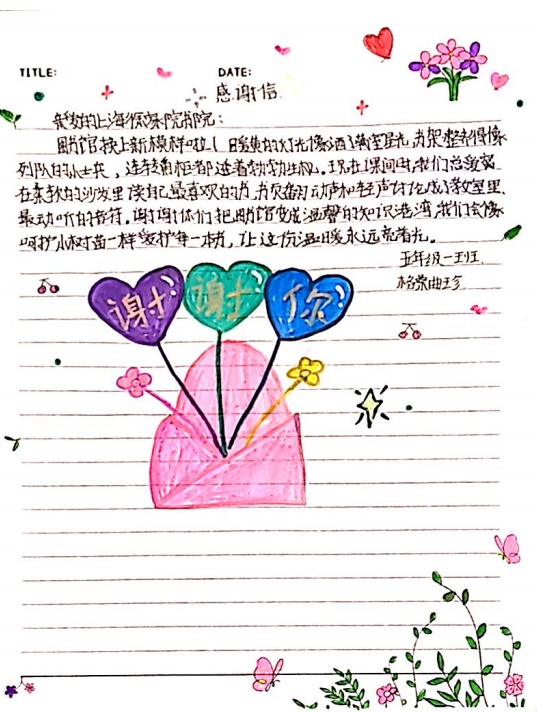 TITLE:
DATE:
感谢信
亲爱的上海徐妹院书院:
图书馆换上新模样啦!暖黄的灯光像洒满室星光,书架整齐得像
列队的小士兵,连转角柜都透着勃勃生机。现在课间时,我们总爱窝
在柔软的沙发里读自己最喜欢的书,书页翻动声和轻声讨论成了教室里
最动听的音符。谢谢你们把图书馆变成温馨的知识港湾,我们会像
呵护小树苗一样爱护每一本书,让这份温暖永远亮着光。
五年级一班
格桑曲珍
谢 谢 你